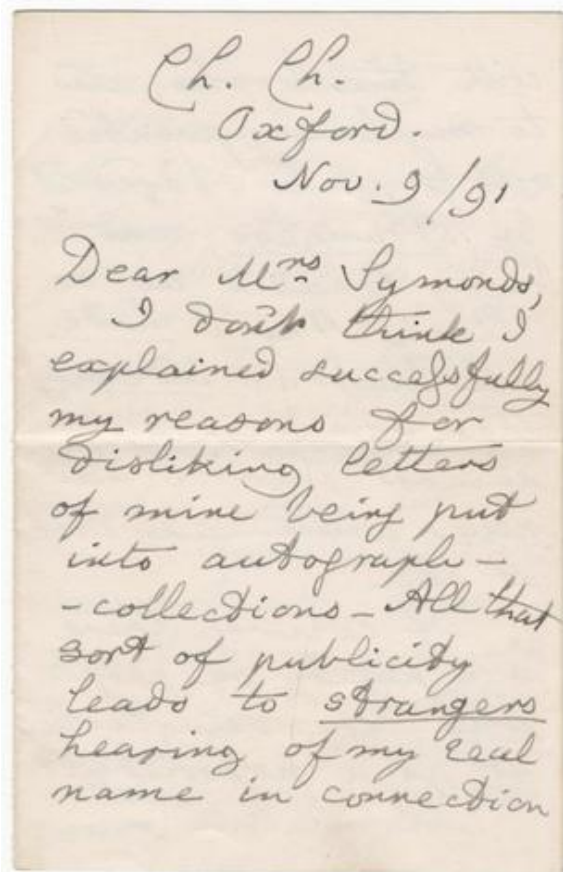 Ch. Ch.
Oxford.
Nov. 9/91
Dear Mrs Symonds,
I don't think I
explained successfully
my reasons for
disliking letters
of mine being put
into autograph-
-collections- All that
sort of publicity
leads to strangers
hearing of my real
name in connection